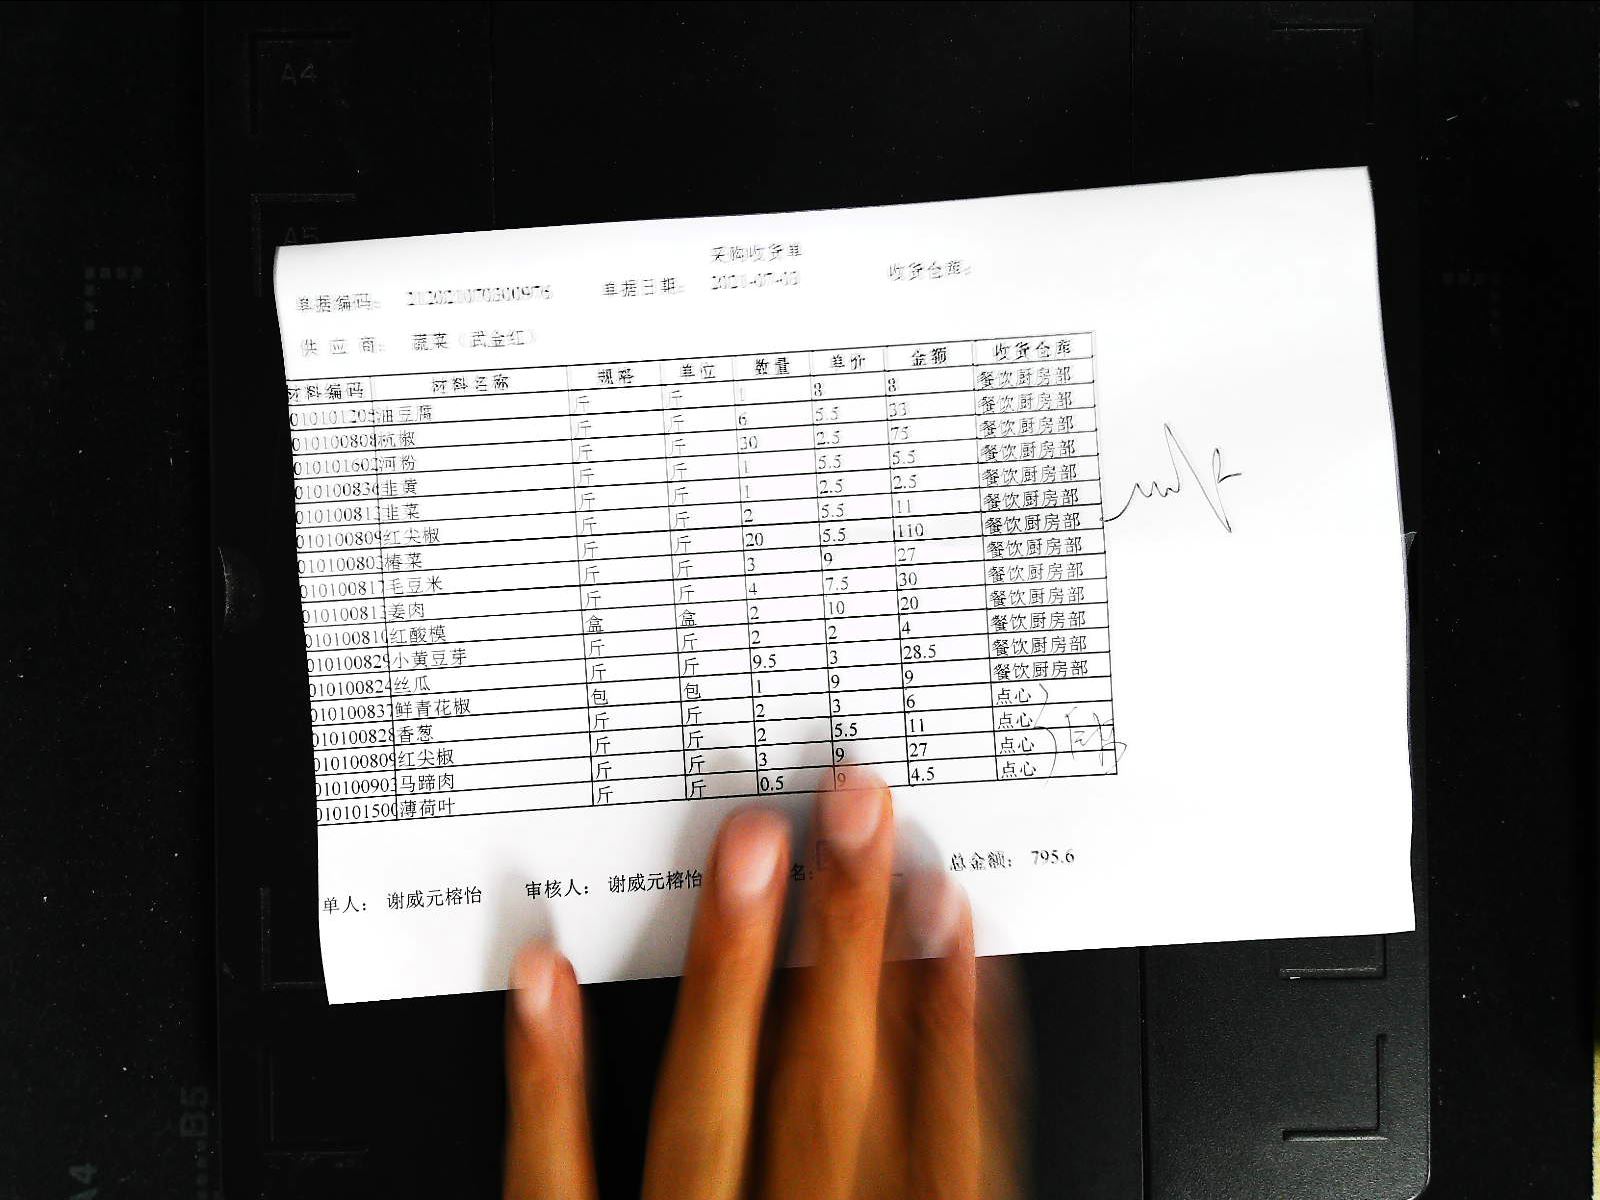 采购收货单
单据编码: 212021070300976 单据日期: 收货仓库:
供 应 商: 蔬菜（武金红）
材料编码 材料名称 规格 单位 数量 单价 金额 收货仓库
油豆腐 斤 斤 1 8 8 餐饮厨房部
010100808 杭椒 斤 斤 6 5.5 33 餐饮厨房部
010101602 河粉 斤 斤 30 2.5 75 餐饮厨房部
010100836 韭黄 斤 斤 1 5.5 5.5 餐饮厨房部
010100812 韭菜 斤 斤 1 2.5 2.5 餐饮厨房部
010100809 红尖椒 斤 斤 2 5.5 11 餐饮厨房部
010100803 椿菜 斤 斤 20 5.5 110 餐饮厨房部
010100817 毛豆米 斤 斤 3 9 27 餐饮厨房部
010100813 姜肉 斤 斤 4 7.5 30 餐饮厨房部
010100810 红酸模 盒 盒 2 10 20 餐饮厨房部
010100829 小黄豆芽 斤 斤 2 2 4 餐饮厨房部
010100824 丝瓜 斤 斤 9.5 3 28.5 餐饮厨房部
010100837 鲜青花椒 包 包 1 9 9 餐饮厨房部
010100828 香葱 斤 斤 2 3 6 点心
010100809 红尖椒 斤 斤 2 5.5 11 点心
010100903 马蹄肉 斤 斤 3 9 27 点心
010101500 薄荷叶 斤 斤 0.5 9 4.5 点心
单人: 谢威元榕怡 审核人: 谢威元榕怡 名: 总金额: 795.6